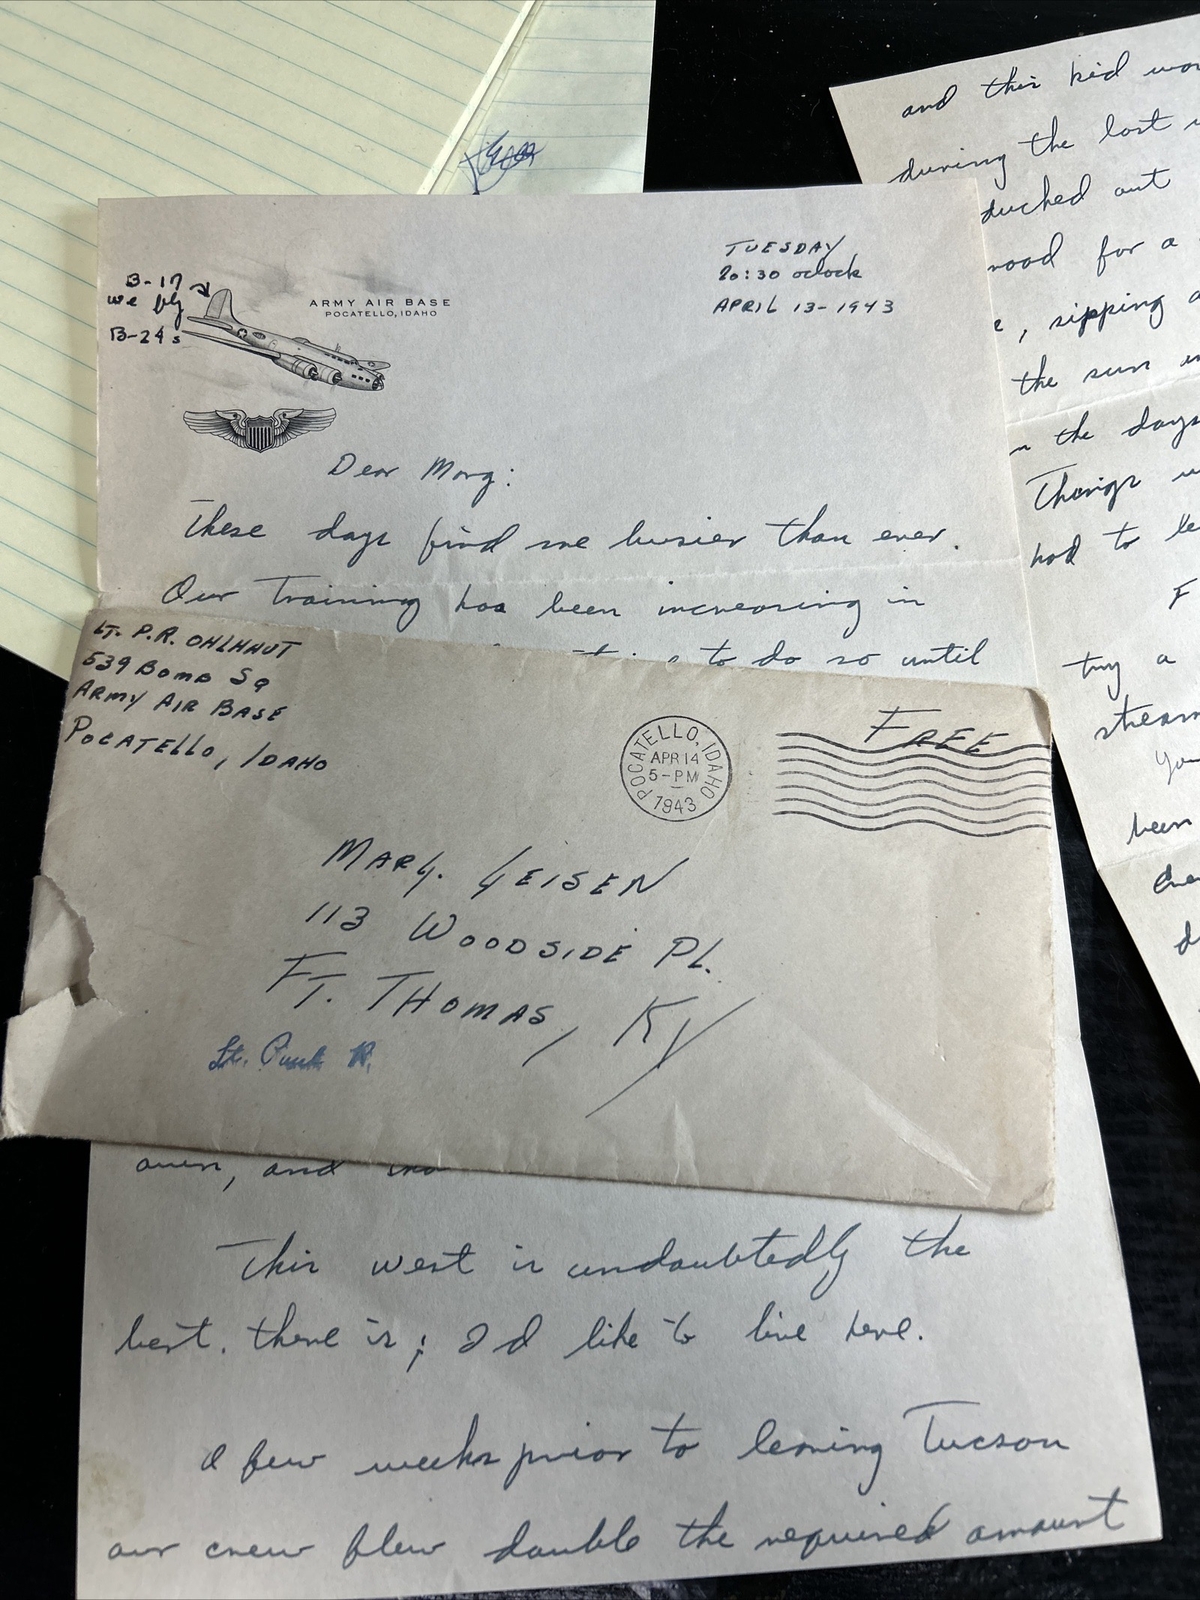 B-17
we fly
B-24s
ARMY AIR BASE
POCATELLO, IDAHO
TUESDAY
20:30 oclock
APRIL 13-1943
Dear Marg:
These days find me busier than ever.
Our training has been increasing in
to do so until
LT. P.R. OHLHAUT
539 BOMB SQ
ARMY AIR BASE
POCATELLO, IDAHO
POCATELLO, IDAHO
APR 14
5-PM
1943
FREE
MARG. GEISEN
113 WOODSIDE PL.
FT. THOMAS, KY
Lt.
and
This west is undoubtedly the
best there is; I'd like to live here.
A few weeks prior to leaving Tucson
our crew flew double the required amount
and this kid
during the last
ducked out
for a
, sipping
the sun
the days
Things
had to
try a
been